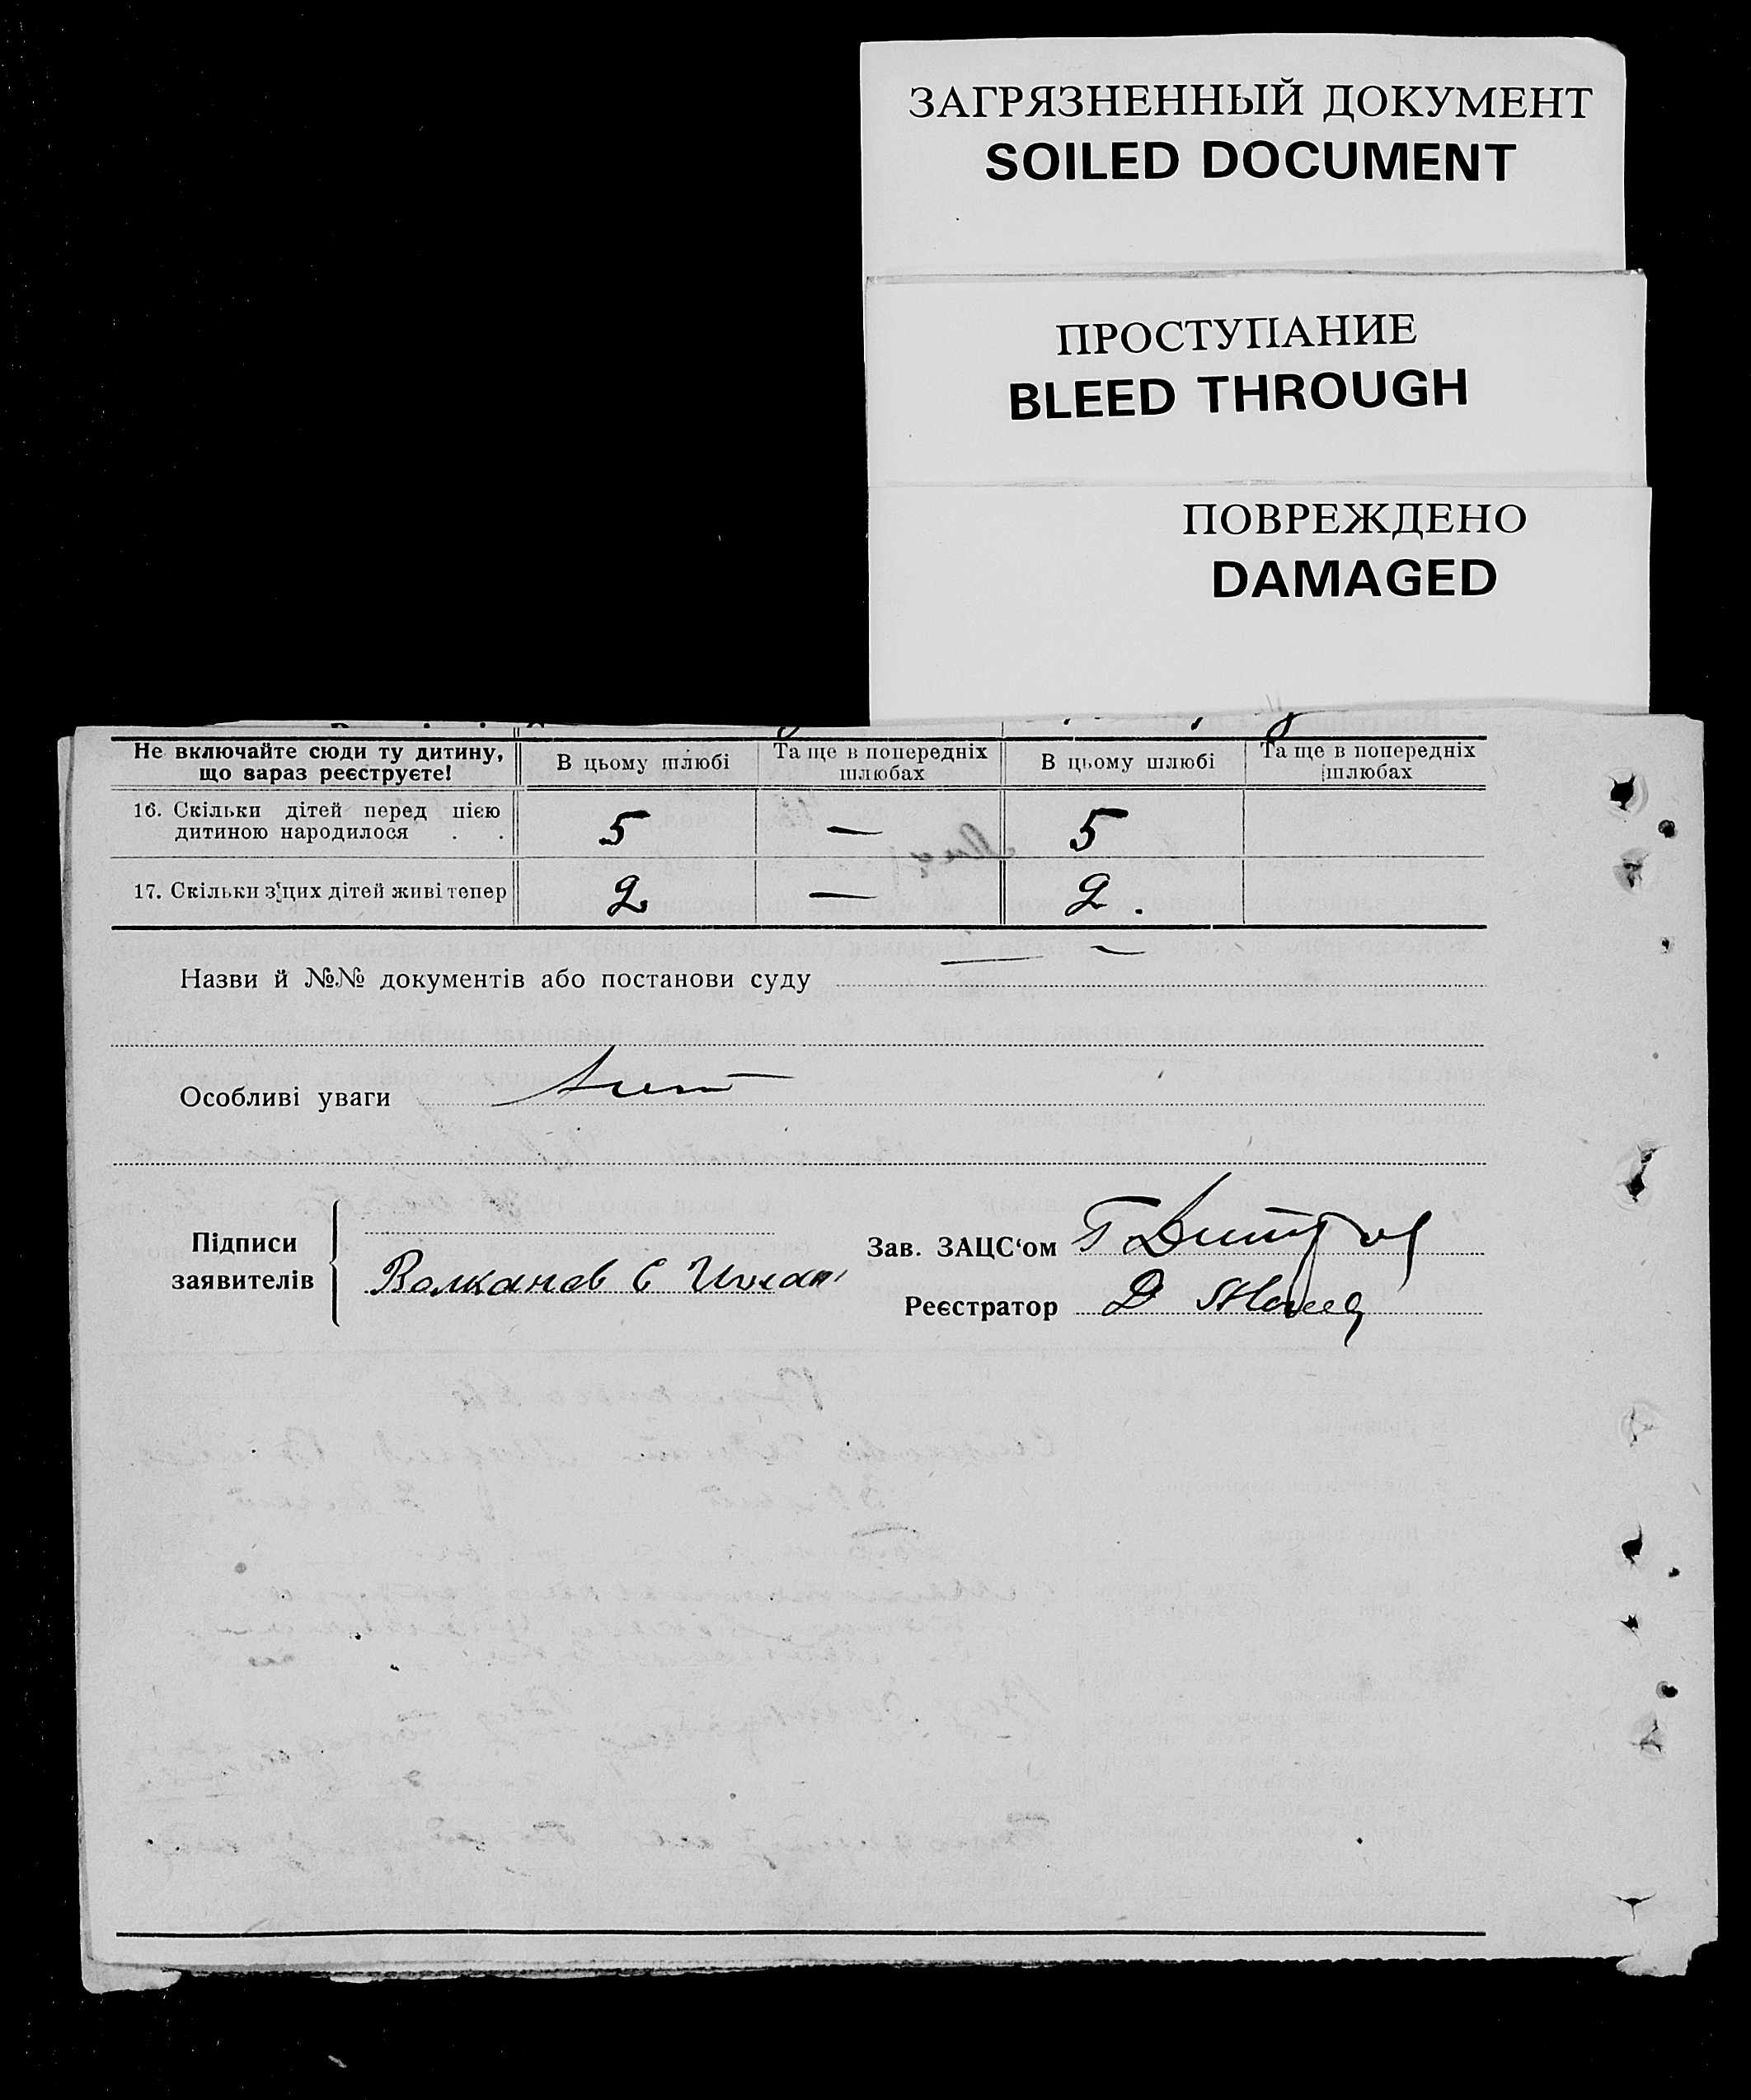 ЗАГРЯЗНЕННЫЙ ДОКУМЕНТ
SOILED DOCUMENT
ПРОСТУПАНИЕ
BLEED THROUGH
ПОВРЕЖДЕНО
DAMAGED
Не включайте сюди ту дитину, що зараз реєструєте!
В цьому шлюбі
Та ще в попередніх шлюбах
В цьому шлюбі
Та ще в попередніх шлюбах
16. Скільки дітей перед цією дитиною народилося . .
5
—
5
17. Скільки з цих дітей живі тепер
2
—
2.
Назви й №№ документів або постанови суду
Особливі уваги
Підписи заявителів
Волканов С
Зав. ЗАЦС‘ом
Реєстратор Д